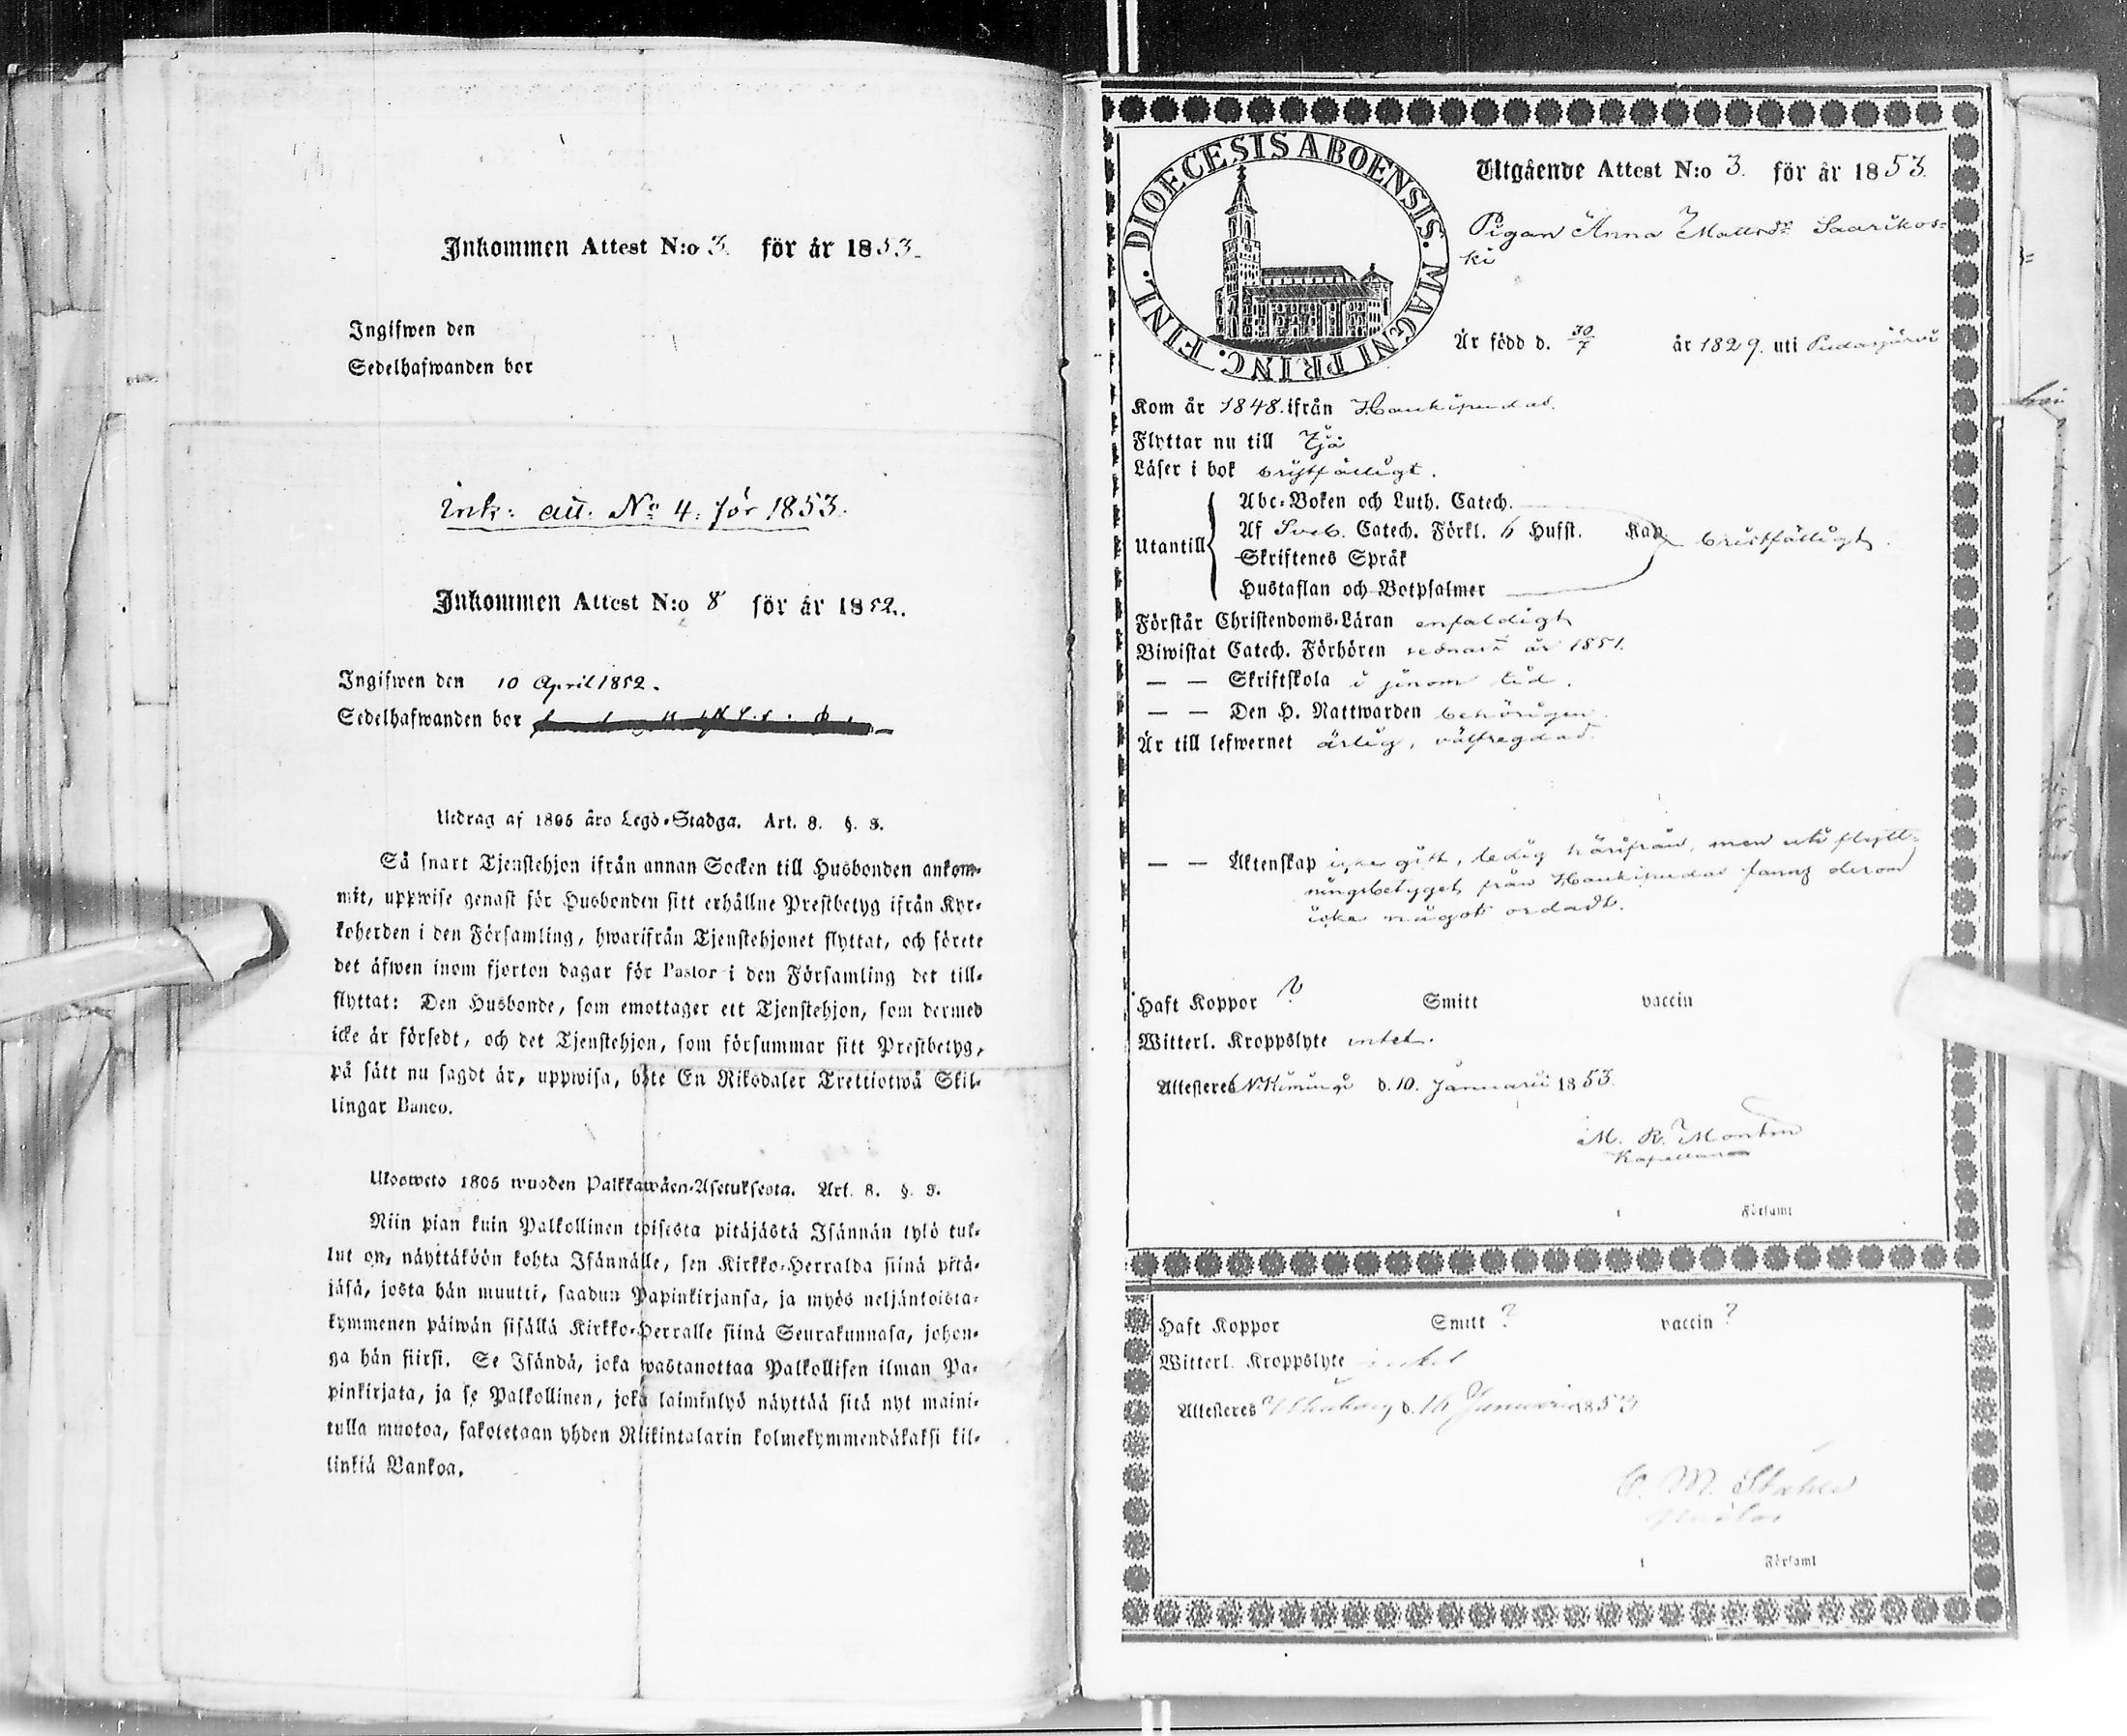 Inkommen Attest N:o 3. för år 1853.
Ingifwen den
Sedelhafwanden bor
Ink: att. No 4. för 1853.
Inkommen Attest N:o 8 för år 1852.
Ingifwen den 10 April 1852.
Sedelhafwanden bor
Utdrag af 1805 års Lego-Stadga. Art. 8. §. 3.
Så snart Tjenstehjon ifrån annan Socken till Husbonden ankom-
mit, uppwise genast för Husbonden sitt erhållne Prestbetyg ifrån Kyr-
koherden i den Församling, hwarifrån Tjenstehjonet flyttat, och förete
det äfwen inom fjorton dagar för Pastor i den Församling det till-
flyttat: Den Husbonde, som emottager ett Tjenstehjon, som dermed
icke är försedt, och det Tjenstehjon, som försummar sitt Prestbetyg,
på sätt nu sagdt är, uppwisa, böte En Riksdaler Trettiotwå Skil-
lingar Banco.
Ulosweto 1805 wuoden Palkkawäen-Asetuksesta. Art. 8. §. 3.
Niin pian kuin Palkollinen toisesta pitäjästä Isännän tykö tul-
lut on, näyttäköön kohta Isännälle, sen Kirkko-Herralda siinä pitä-
jäsä, josta hän muutti, saadun Papinkirjansa, ja myös neljäntoista-
kymmenen päiwän sisällä Kirkko-Herralle siinä Seurakunnasa, johon-
ga hän siirsi. Se Isändä, joka wastanottaa Palkollisen ilman Pa-
pinkirjata, ja se Palkollinen, joka laiminlyö näyttää sitä nyt maini-
tulla muotoa, sakotetaan yhden Riikintalarin kolmekymmendäkaksi kil-
linkiä Bankoa.
DIOECESIS ABOENSIS. MAGNI PRINC. FINL.
Utgående Attest N:o 3. för år 1853.
Pigan Anna Mattsdr Saarikos-
ki
Är född d. 30/7 år 1829. uti Pudasjärvi
Kom år 1848. ifrån Haukipudas.
Flyttar nu till Ijå
Läser i bok bristfälligt.
Utantill
Abc-Boken och Luth. Catech.
Af Sveb. Catech. Förkl. 6 Hufst. Kap. bristfälligt.
Skriftenes Språk
Hustaflan och Botpsalmer
Förstår Christendoms-Läran enfaldigt
Biwistat Catech. Förhören sednast år 1851.
— — Skriftskola i sinom tid.
— — Den H. Nattwarden behörigen.
Är till lefwernet ärlig, välfrägdad.
— — Äktenskap icke gift, ledig härifrån, men uti flytt-
ningsbetyget från Haukipudas fanns derom
icke något ordadt.
Haft Koppor ? Smitt vaccin
Witterl. Kroppslyte intet.
Attesteres N. Kiminge d. 10. Januarii 1853.
M. R. Montin
Kapellan
i Församl
Haft Koppor Smitt ? vaccin ?
Witterl. Kroppslyte intet
Attesteres d. 16 Januarii 1853
C. M.
i Församl